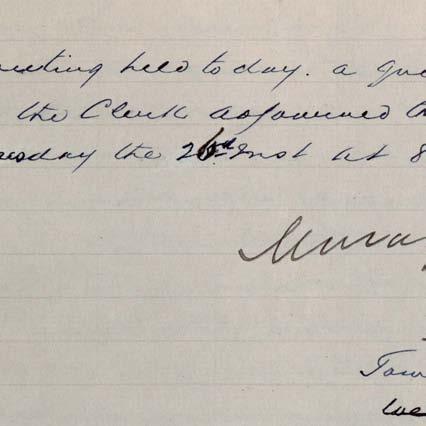 eeting held today. a qu
the Clerk adjourned
esday the 26 Inst at 8
Mura
Tow
We